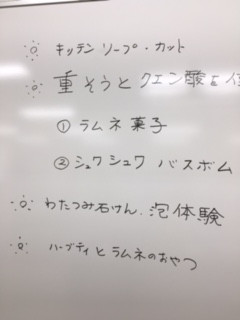 キッテン ソープ・カット
重そうとクエン酸を
① ラムネ菓子
② シュワシュワ バスボム
わたつみ石けん、泡体験
ハーブティとラムネのおやつ